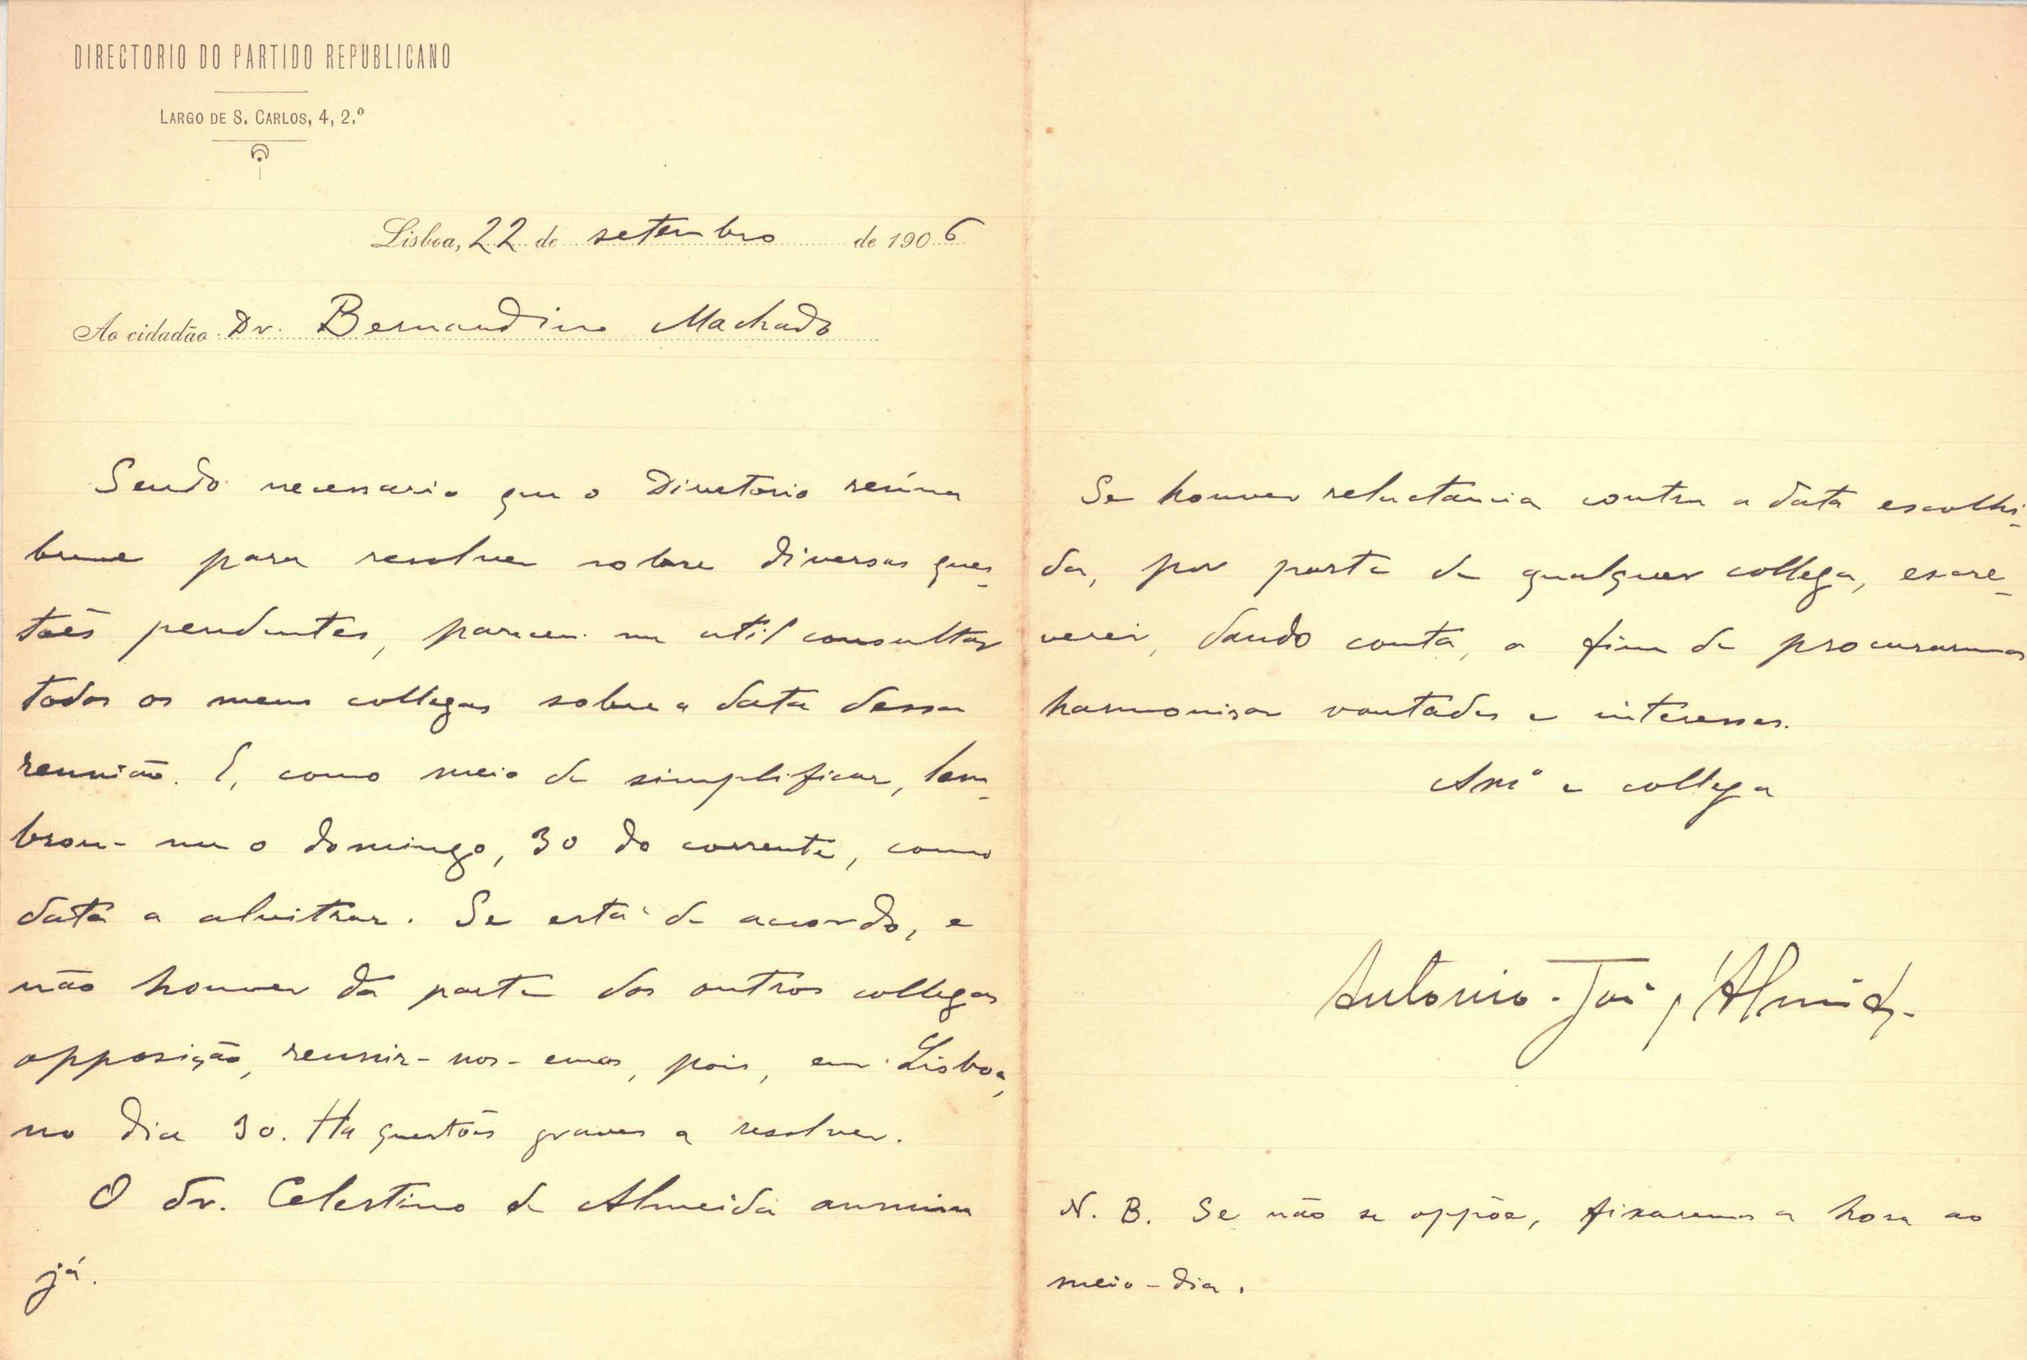 DIRECTORIO DO PARTIDO REPUBLICANO
LARGO DE S. CARLOS, 4, 2.º
Lisboa, 22 de setembro de 1906
Ao cidadão Dr. Bernardino Machado
Sendo necessario que o Directorio reúna
breve para resolver sobre diversas ques-
tões pendentes, pareceu-me util consultar
todos os meus collegas sobre a data dessa
reunião. E, como meio de simplificar, lem-
brou-me o domingo, 30 do corrente, como
data a alvitrar. Se está de accordo, e
não houver da parte dos outros collegas
opposição, reunir-nos-emos, pois, em Lisboa,
no dia 30. Ha questões graves a resolver.
O dr. Celestino de Almeida annuiu
já.
Se houver reluctancia contra a data escolhi-
da, por parte de qualquer collega, escre-
verei, dando conta, a fim de procurarmos
harmonisar vontades e interesses.
Amº e collega
Antonio José d'Almeida
N. B. Se não se oppõe, fixaremos a hora ao
meio-dia.